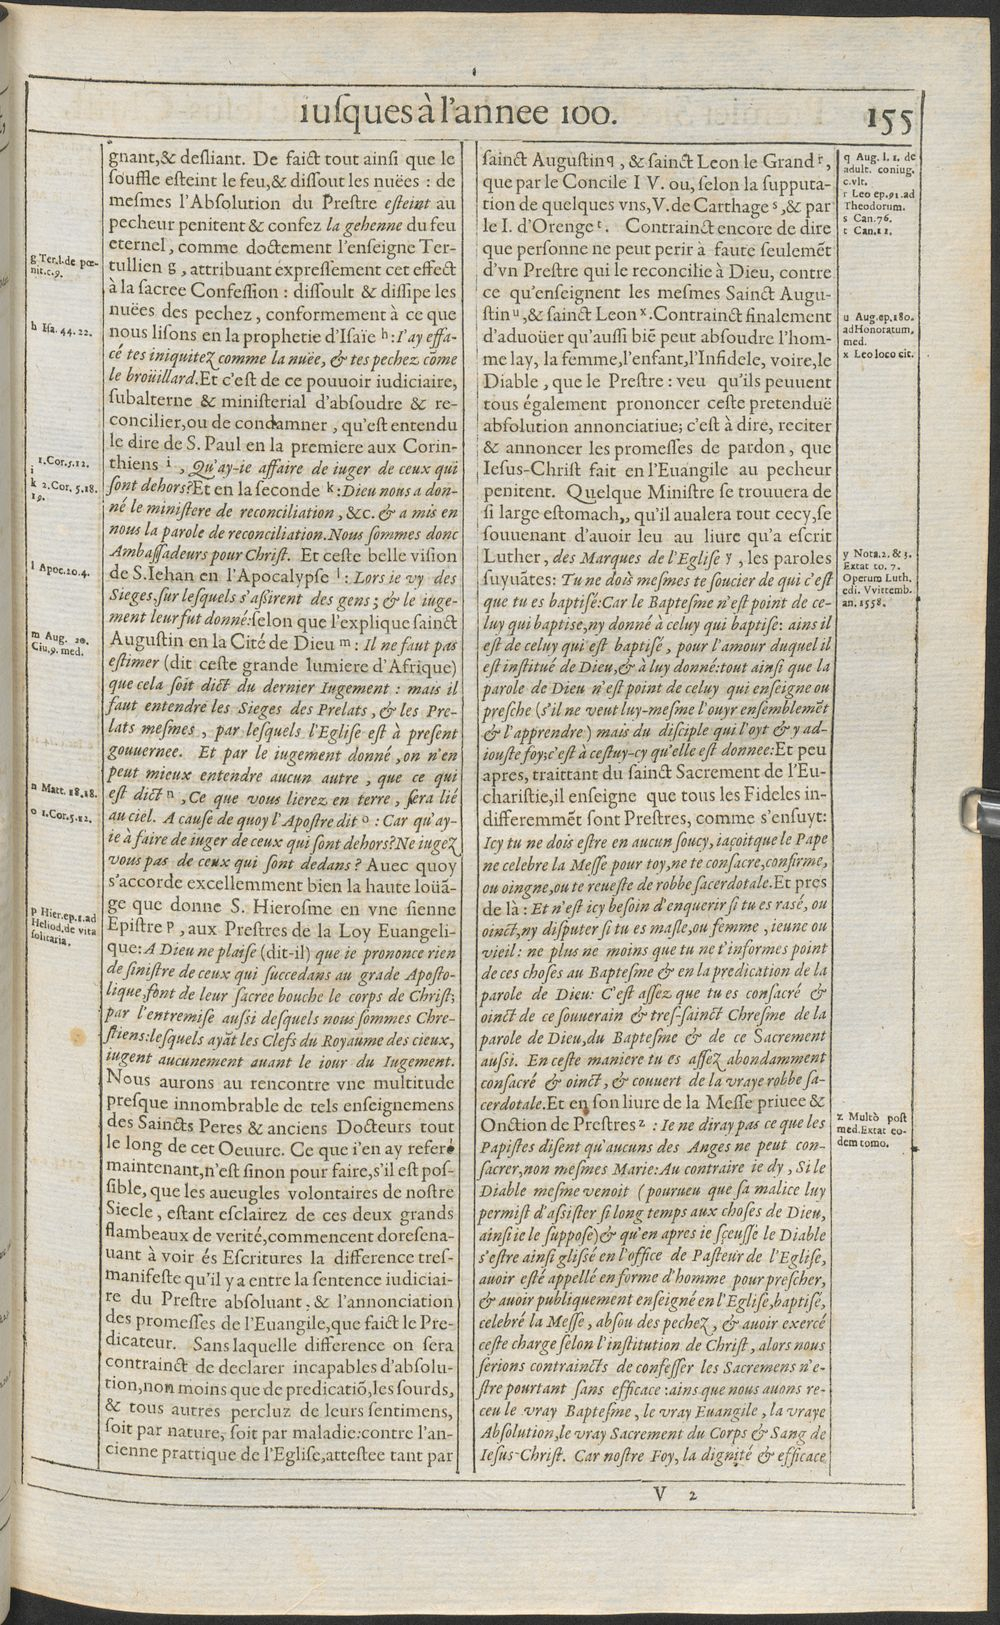 iuſques à l'annee 100.
155
gnant,& desliant. De faict tout ainſi que le
ſouffle eſteint le feu,& diſſout les nuëes : de
meſmes l'Abſolution du Preſtre eſteint au
pecheur penitent & confez la gehenne du feu
eternel, comme doctement l'enſeigne Ter-
tullien g, attribuant expreſſement cet effect
à la ſacree Confeſſion : diſſoult & diſſipe les
nuëes des pechez, conformement à ce que
nous liſons en la prophetie d'Iſaïe h: I'ay effa-
cé tes iniquitez comme la nuëe, & tes pechez cõme
le broüillard.Et c'eſt de ce pouuoir iudiciaire,
ſubalterne & miniſterial d'abſoudre & re-
concilier,ou de condamner, qu'eſt entendu
le dire de S. Paul en la premiere aux Corin-
thiens i, Qu'ay-ie affaire de iuger de ceux qui
ſont dehors?Et en la ſeconde k:Dieu nous a don-
né le miniſtere de reconciliation, &c. & a mis en
nous la parole de reconciliation.Nous ſommes donc
Ambaſſadeurs pour Chriſt. Et ceſte belle viſion
de S.Iehan en l'Apocalypſe l: Lors ie vy des
Sieges,ſur leſquels s'aßirent des gens; & le iuge-
ment leur fut donné:ſelon que l'explique ſainct
Auguſtin en la Cité de Dieu m: Il ne faut pas
eſtimer (dit ceſte grande lumiere d'Afrique)
que cela ſoit dict du dernier Iugement : mais il
faut entendre les Sieges des Prelats, & les Pre-
lats meſmes, par leſquels l'Egliſe eſt à preſent
gouuernee. Et par le iugement donné, on n'en
peut mieux entendre aucun autre, que ce qui
eſt dict n, Ce que vous lierez en terre, ſera lié
au ciel. A cauſe de quoy l'Apoſtre dit o : Car qu'ay-
ie à faire de iuger de ceux qui ſont dehors?Ne iugez
vous pas de ceux qui ſont dedans? Auec quoy
s'accorde excellemment bien la haute loüã-
ge que donne S. Hieroſme en vne ſienne
Epiſtre p, aux Preſtres de la Loy Euangeli-
que: A Dieu ne plaiſe (dit-il) que ie prononce rien
de ſiniſtre de ceux qui ſuccedans au grade Apoſto-
lique,font de leur ſacree bouche le corps de Chriſt;
par l'entremiſe auſsi deſquels nous ſommes Chre-
ſtiens:leſquels ayãt les Clefs du Royaume des cieux,
iugent aucunement auant le iour du Iugement.
Nous aurons au rencontre vne multitude
preſque innombrable de tels enſeignemens
des Saincts Peres & anciens Docteurs tout
le long de cet Oeuure. Ce que i'en ay referé
maintenant,n'eſt ſinon pour faire,s'il eſt poſ-
ſible, que les aueugles volontaires de noſtre
Siecle, eſtant eſclairez de ces deux grands
flambeaux de verité,commencent doreſena-
uant à voir és Eſcritures la difference treſ-
manifeſte qu'il y a entre la ſentence iudiciai-
re du Preſtre abſoluant, & l'annonciation
des promeſſes de l'Euangile,que faict le Pre-
dicateur. Sans laquelle difference on ſera
contrainct de declarer incapables d'abſolu-
tion,non moins que de predicatiõ,les ſourds,
& tous autres percluz de leurs ſentimens,
ſoit par nature, ſoit par maladie:contre l'an-
cienne prattique de l'Egliſe,atteſtee tant par
g Ter.l.de pœ-
nit.c.9.
h Iſa. 44. 22.
i 1.Cor.5.12.
k 2.Cor. 5.18.
19.
l Apoc.20.4.
m Aug. 20.
Ciu.9. med.
n Matt. 18.18.
o 1.Cor.5.12.
p Hier.ep.1.ad
Heliod.de vita
ſolitaria.
ſainct Auguſtin q, & ſainct Leon le Grand r,
que par le Concile I V. ou, ſelon la ſupputa-
tion de quelques vns, V. de Carthage s, & par
le I. d'Orenge t. Contrainct encore de dire
que perſonne ne peut perir à faute ſeulemẽt
d'vn Preſtre qui le reconcilie à Dieu, contre
ce qu'enſeignent les meſmes Sainct Augu-
ſtin u,& ſainct Leon x.Contrainct finalement
d'aduoüer qu'auſſi biẽ peut abſoudre l'hom-
me lay, la femme,l'enfant,l'Infidele, voire,le
Diable, que le Preſtre : veu qu'ils peuuent
tous également prononcer ceſte pretenduë
abſolution annonciatiue; c'eſt à dire, reciter
& annoncer les promeſſes de pardon, que
Ieſus-Chriſt fait en l'Euangile au pecheur
penitent. Quelque Miniſtre ſe trouuera de
ſi large eſtomach,, qu'il aualera tout cecy,ſe
ſouuenant d'auoir leu au liure qu'a eſcrit
Luther, des Marques de l'Egliſe y, les paroles
ſuyuãtes: Tu ne dois meſmes te ſoucier de qui c'eſt
que tu es baptiſé:Car le Bapteſme n'eſt point de ce-
luy qui baptiſe,ny donné à celuy qui baptiſe: ains il
eſt de celuy qui eſt baptiſé, pour l'amour duquel il
eſt inſtitué de Dieu,& à luy donné:tout ainſi que la
parole de Dieu n'eſt point de celuy qui enſeigne ou
preſche (s'il ne veut luy-meſme l'ouyr enſemblemẽt
& l'apprendre) mais du diſciple qui l'oyt & y ad-
iouſte foy;c'eſt à ceſtuy-cy qu'elle eſt donnee:Et peu
apres, traittant du ſainct Sacrement de l'Eu-
chariſtie,il enſeigne que tous les Fideles in-
differemmẽt ſont Preſtres, comme s'enſuyt:
Icy tu ne dois eſtre en aucun ſoucy, iaçoit que le Pape
ne celebre la Meſſe pour toy,ne te conſacre,confirme,
ou oingne,ou te reueſte de robbe ſacerdotale.Et pres
de là : Et n'eſt icy beſoin d'enquerir ſi tu es rasé, ou
oinct,ny diſputer ſi tu es maſle,ou femme, ieune ou
vieil: ne plus ne moins que tu ne t'informes point
de ces choſes au Bapteſme & en la predication de la
parole de Dieu: C'eſt aſſez que tu es conſacré &
oinct de ce ſouuerain & treſ-ſainct Chreſme de la
parole de Dieu,du Bapteſme & de ce Sacrement
auſsi. En ceſte maniere tu es aſſez abondamment
conſacré & oinct, & couuert de la vraye robbe ſa-
cerdotale.Et en ſon liure de la Meſſe priuee &
Onction de Preſtres z : Ie ne diray pas ce que les
Papiſtes diſent qu'aucuns des Anges ne peut con-
ſacrer,non meſmes Marie:Au contraire ie dy, Si le
Diable meſme venoit (pourueu que ſa malice luy
permiſt d'aſsiſter ſi long temps aux choſes de Dieu,
ainſi ie le ſuppoſe)& qu'en apres ie ſçeuſſe le Diable
s'eſtre ainſi gliſſé en l'office de Paſteur de l'Egliſe,
auoir eſté appellé en forme d'homme pour preſcher,
& auoir publiquement enſeigné en l'Egliſe,baptiſé,
celebré la Meſſe, abſou des pechez, & auoir exercé
ceſte charge ſelon l'inſtitution de Chriſt, alors nous
ſerions contraincts de confeſſer les Sacremens n'e-
ſtre pourtant ſans efficace :ains que nous auons re-
ceu le vray Bapteſme, le vray Euangile, la vraye
Abſolution,le vray Sacrement du Corps & Sang de
Ieſus-Chriſt. Car noſtre Foy, la dignité & efficace
q Aug. l. 1. de
adult. coniug.
c.vlt.
r Leo ep.91.ad
Theodorum.
s Can.76.
t Can.11.
u Aug.ep.180.
ad Honoratum.
med.
x Leo loco cit.
y Nota.2. & 3.
Extat to. 7.
Operum Luth.
edi. Vvittemb.
an. 1558.
z Multò poſt
med.Extat eo-
dem tomo.
V 2